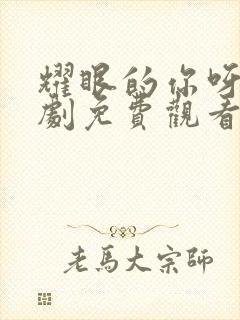 耀眼的你呀
劇免費觀看
老馬大宗師